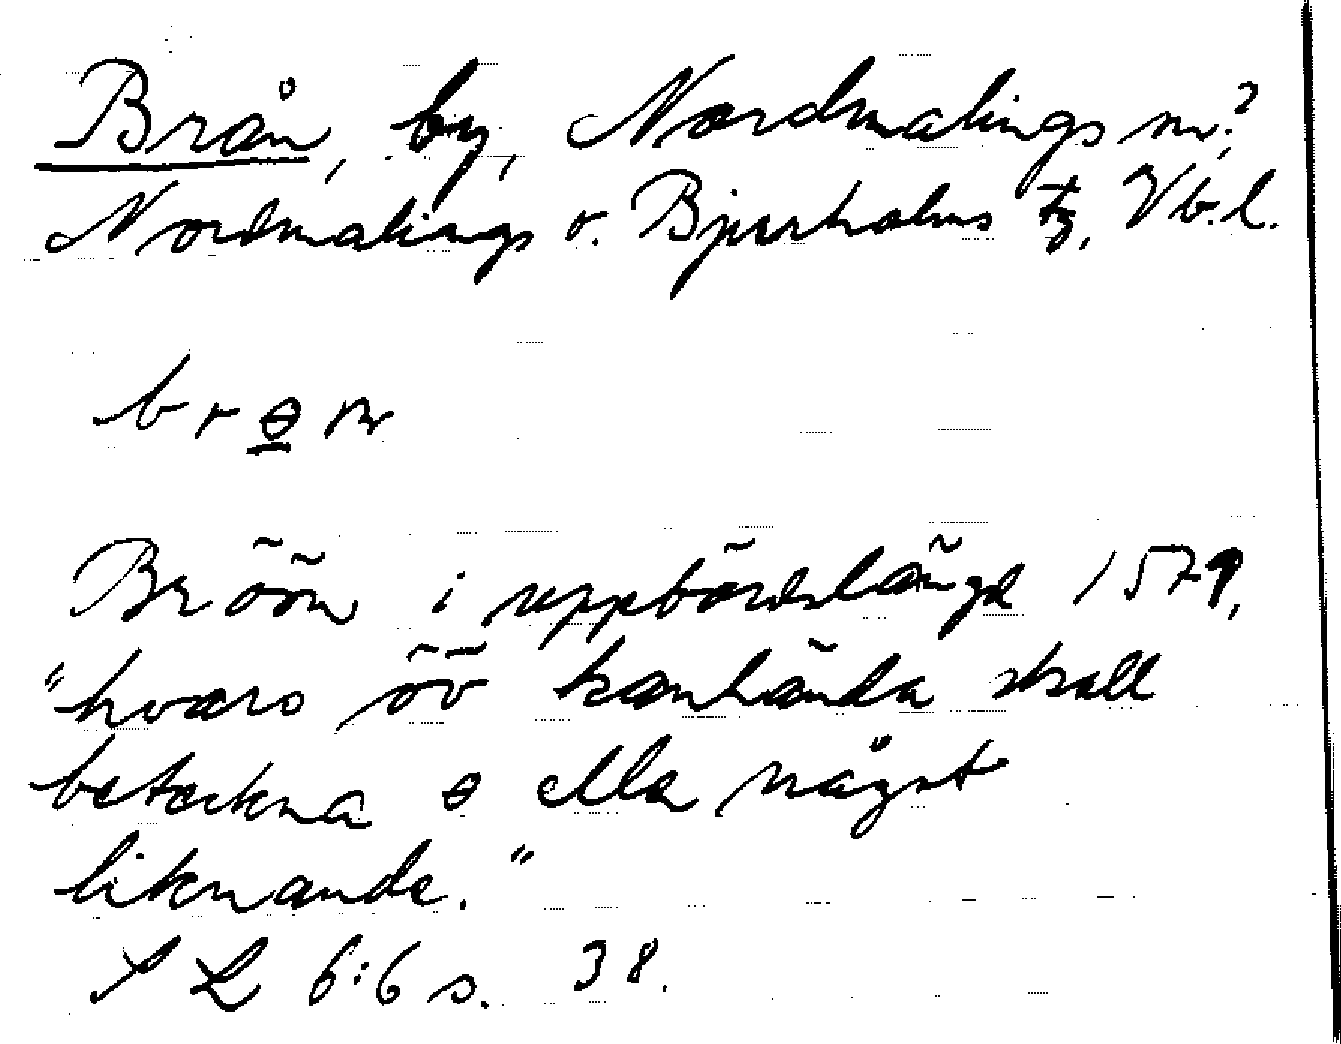 Brån, by, Nordmalings sn?,
Nordmalings o. Bjurholms tg, Vb.l.
brɵn
Bröön i uppbördslängd 1579,
"hvars öö kanhända skall
beteckna ɵ eller något
liknande."
SL 6:6 s. 38.